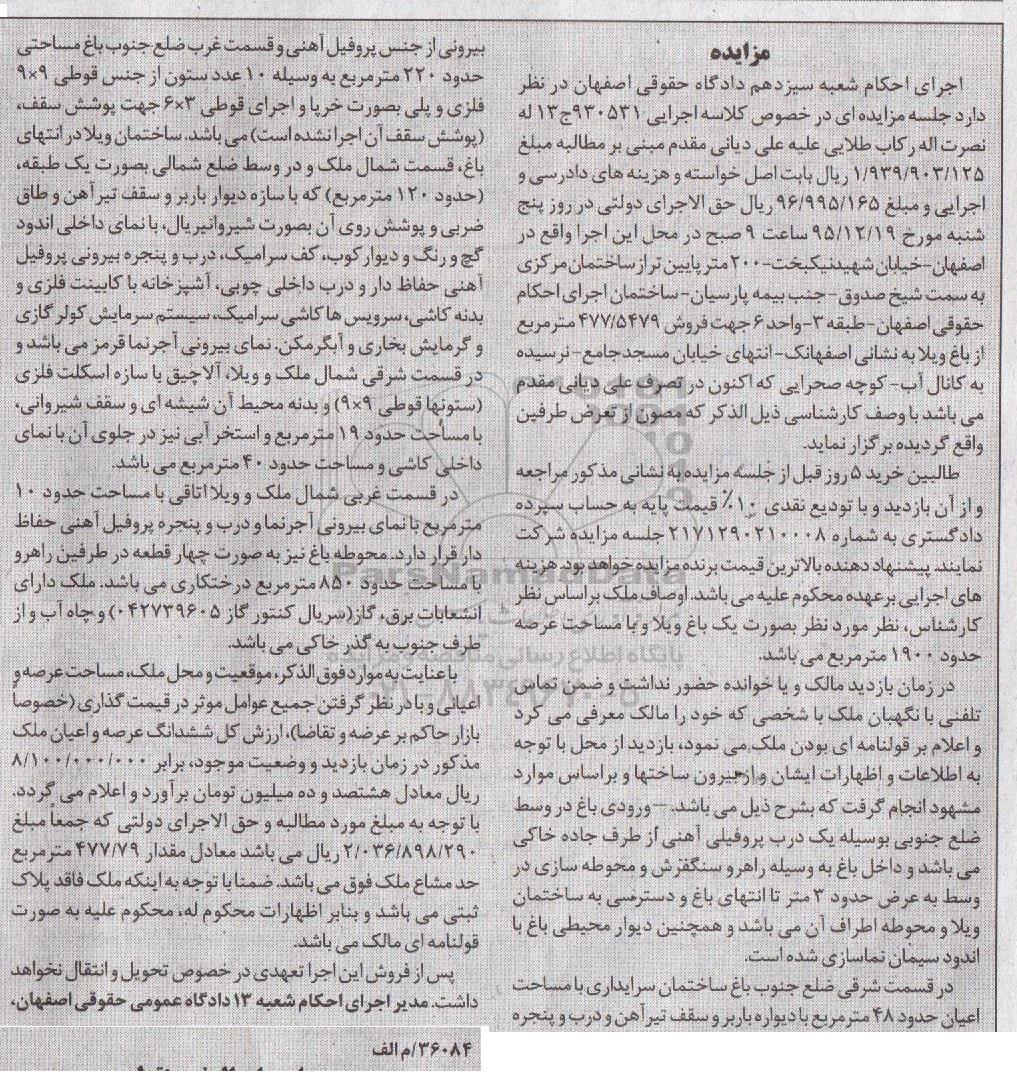 مزایده
اجرای احکام شعبه سیزدهم دادگاه حقوقی اصفهان در نظر
دارد جلسه مزایده ای در خصوص کلاسه اجرایی ۹۳۰۵۳۱ج۱۳ له
نصرت اله رکاب طلایی علیه علی دیانی مقدم مبنی بر مطالبه مبلغ
۱/۹۳۹/۹۰۳/۱۲۵ ریال بابت اصل خواسته و هزینه های دادرسی و
اجرایی و مبلغ ۹۶/۹۹۵/۱۶۵ ریال حق الاجرای دولتی در روز پنج
شنبه مورخ ۹۵/۱۲/۱۹ ساعت ۹ صبح در محل این اجرا واقع در
اصفهان-خیابان شهیدنیکبخت-۲۰۰ متر پایین تر از ساختمان مرکزی
به سمت شیخ صدوق-جنب بیمه پارسیان-ساختمان اجرای احکام
حقوقی اصفهان-طبقه ۳-واحد ۶ جهت فروش ۴۷۷/۵۴۷۹ مترمربع
از باغ ویلا به نشانی اصفهانک-انتهای خیابان مسجدجامع-نرسیده
به کانال آب-کوچه صحرایی که اکنون در تصرف علی دیانی مقدم
می باشد با وصف کارشناسی ذیل الذکر که مصون از تعرض طرفین
واقع گردیده برگزار نماید.
طالبین خرید ۵ روز قبل از جلسه مزایده به نشانی مذکور مراجعه
و از آن بازدید و با تودیع نقدی ۱۰٪ قیمت پایه به حساب سپرده
دادگستری به شماره ۲۱۷۱۲۹۰۲۱۰۰۰۸ جلسه مزایده شرکت
نمایند. پیشنهاد دهنده بالاترین قیمت برنده مزایده خواهد بود. هزینه
های اجرایی برعهده محکوم علیه می باشد. اوصاف ملک بر اساس نظر
کارشناس، نظر مورد نظر بصورت یک باغ ویلا و با مساحت عرصه
حدود ۱۹۰۰ مترمربع می باشد.
در زمان بازدید مالک و یا خوانده حضور نداشت و ضمن تماس
تلفنی با نگهبان ملک با شخصی که خود را مالک معرفی می کرد
و اعلام بر قولنامه ای بودن ملک می نمود، بازدید از محل با توجه
به اطلاعات و اظهارات ایشان و از بیرون ساختها و براساس موارد
مشهود انجام گرفت که بشرح ذیل می باشد. -ورودی باغ در وسط
ضلع جنوبی بوسیله یک درب پروفیلی آهنی از طرف جاده خاکی
می باشد و داخل باغ به وسیله راهرو سنگفرش و محوطه سازی در
وسط به عرض حدود ۳ متر تا انتهای باغ و دسترسی به ساختمان
ویلا و محوطه اطراف آن می باشد و همچنین دیوار محیطی باغ با
اندود سیمان نماسازی شده است.
در قسمت شرقی ضلع جنوب باغ ساختمان سرایداری با مساحت
اعیان حدود ۴۸ مترمربع با دیواره باربر و سقف تیرآهن و درب و پنجره
بیرونی از جنس پروفیل آهنی و قسمت غرب ضلع جنوب باغ مساحتی
حدود ۲۲۰ مترمربع به وسیله ۱۰ عدد ستون از جنس قوطی ۹×۹
فلزی و پلی بصورت خرپا و اجرای قوطی ۳×۶ جهت پوشش سقف،
(پوشش سقف آن اجرا نشده است) می باشد. ساختمان ویلا در انتهای
باغ، قسمت شمال ملک و در وسط ضلع شمالی بصورت یک طبقه،
(حدود ۱۲۰ مترمربع) که با سازه دیوار باربر و سقف تیرآهن و طاق
ضربی و پوشش روی آن بصورت شیروانیریال، با نمای داخلی اندود
گچ و رنگ و دیوارکوب، کف سرامیک، درب و پنجره بیرونی پروفیل
آهنی حفاظ دار و درب داخلی چوبی، آشپزخانه با کابینت فلزی و
بدنه کاشی، سرویس ها کاشی سرامیک، سیستم سرمایش کولر گازی
و گرمایش بخاری و آبگرمکن. نمای بیرونی آجرنما قرمز می باشد و
در قسمت شرقی شمال ملک و ویلا، آلاچیق با سازه اسکلت فلزی
(ستونها قوطی ۹×۹) و بدنه محیط آن شیشه ای و سقف شیروانی،
با مسأحت حدود ۱۹ مترمربع و استخر آبی نیز در جلوی آن با نمای
داخلی کاشی و مساحت حدود ۴۰ مترمربع می باشد.
در قسمت غربی شمال ملک و ویلا اتاقی با مساحت حدود ۱۰
مترمربع با نمای بیرونی آجرنما و درب و پنجره پروفیل آهنی حفاظ
دار قرار دارد. محوطه باغ نیز به صورت چهار قطعه در طرفین راهرو
با مساحت حدود ۸۵۰ مترمربع درختکاری می باشد. ملک دارای
انشعابات برق، گاز(سریال کنتور گاز ۰۴۲۷۳۹۶۰۵) و چاه آب و از
طرف جنوب به گذر خاکی می باشد.
با عنایت به موارد فوق الذکر، موقعیت و محل ملک، مساحت عرصه و
اعیانی و با در نظر گرفتن جمیع عوامل موثر در قیمت گذاری (خصوصاً
بازار حاکم بر عرضه و تقاضا)، ارزش کل ششدانگ عرصه و اعیان ملک
مذکور در زمان بازدید و وضعیت موجود، برابر ۸/۱۰۰/۰۰۰/۰۰۰
ریال معادل هشتصد و ده میلیون تومان برآورد و اعلام می گردد.
با توجه به مبلغ مورد مطالبه و حق الاجرای دولتی که جمعاً مبلغ
۲/۰۳۶/۸۹۸/۲۹۰ ریال می باشد معادل مقدار ۴۷۷/۷۹ مترمربع
حد مشاع ملک فوق می باشد. ضمنا با توجه به اینکه ملک فاقد پلاک
ثبتی می باشد و بنابر اظهارات محکوم له، محکوم علیه به صورت
قولنامه ای مالک می باشد.
پس از فروش این اجرا تعهدی در خصوص تحویل و انتقال نخواهد
داشت. مدیر اجرای احکام شعبه ۱۳ دادگاه عمومی حقوقی اصفهان،
۳۶۰۸۴/م الف
ParsNamadData
پایگاه اطلاع رسانی مناقصه و مزایده
۰۲۱-۸۸۳۴۹۶۷۰-۵